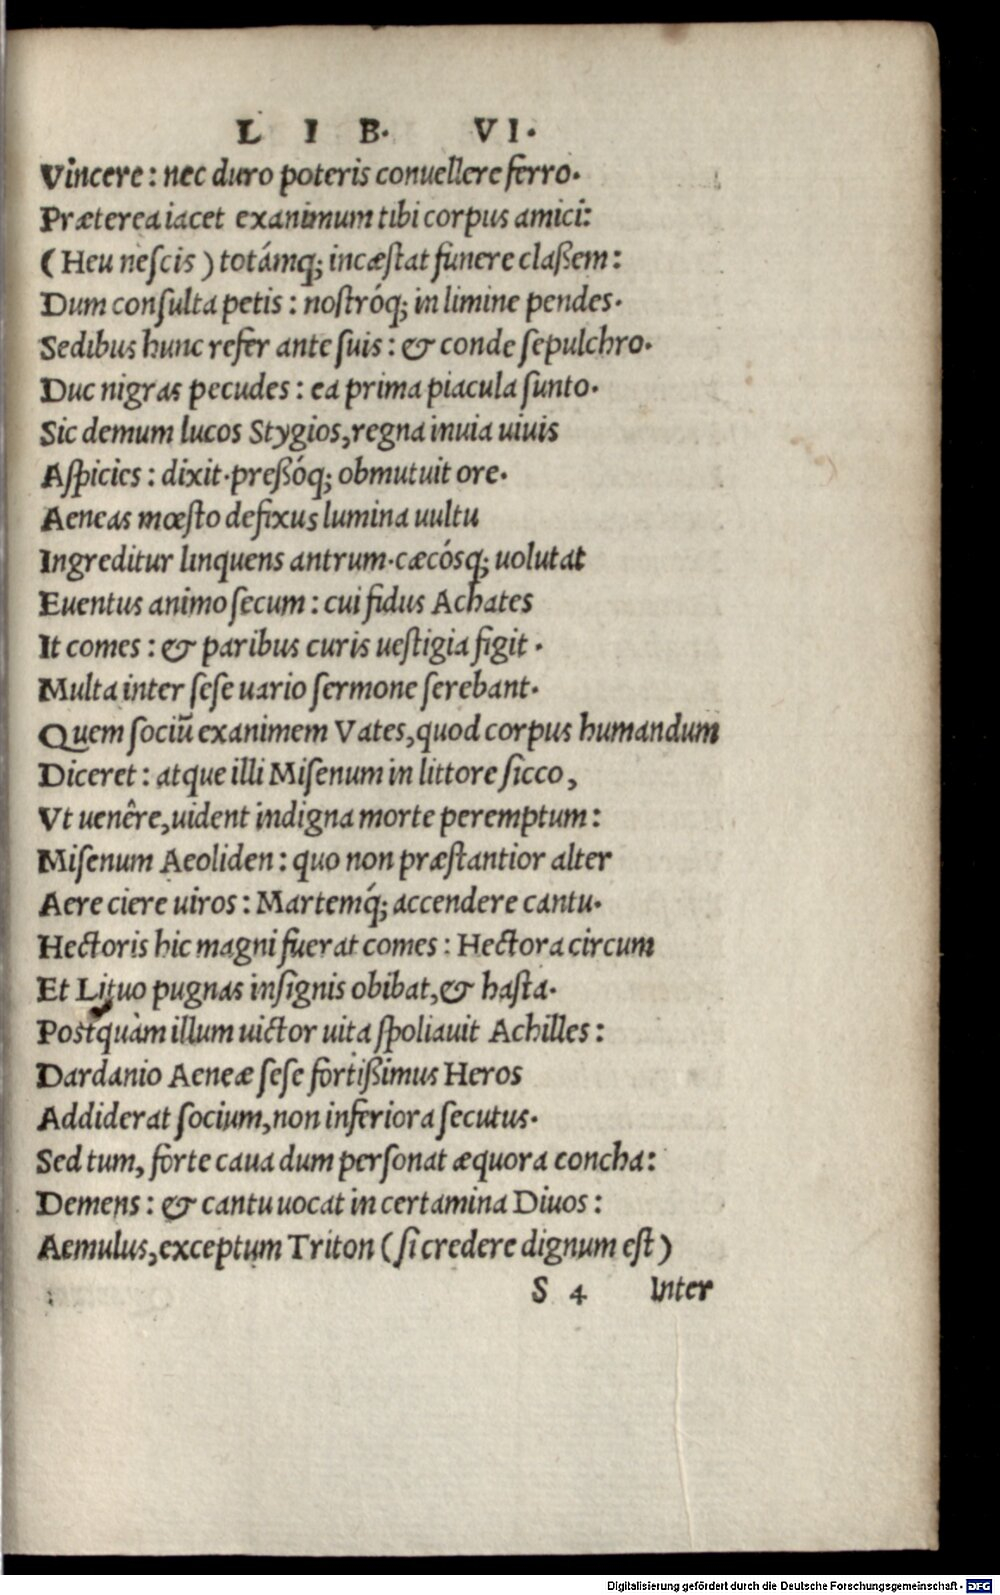 L I B. VI.
Vincere: nec duro poteris conuellere ferro.
Præterea iacet exanimum tibi corpus amici:
(Heu neſcis) totámq; incæſtat funere claßem:
Dum conſulta petis: noſtróq; in limine pendes.
Sedibus hunc refer ante ſuis: & conde ſepulchro.
Duc nigras pecudes: ea prima piacula ſunto.
Sic demum lucos Stygios, regna inuia uiuis
Aſpicies: dixit. preßóq; obmutuit ore.
Aeneas mœſto defixus lumina uultu
Ingreditur linquens antrum. cæcósq; uolutat
Euentus animo ſecum: cui fidus Achates
It comes: & paribus curis ueſtigia figit.
Multa inter ſeſe uario ſermone ſerebant.
Quem ſociū exanimem Vates, quod corpus humandum
Diceret: atque illi Miſenum in littore ſicco,
Vt uenêre, uident indigna morte peremptum:
Miſenum Aeoliden: quo non præſtantior alter
Aere ciere uiros: Martemq́; accendere cantu.
Hectoris hic magni fuerat comes: Hectora circum
Et Lituo pugnas inſignis obibat, & haſta.
Postquàm illum uictor uita ſpoliauit Achilles:
Dardanio Aeneæ ſeſe fortißimus Heros
Addiderat ſocium, non inferiora ſecutus.
Sed tum, forte caua dum perſonat æquora concha:
Demens: & cantu uocat in certamina Diuos:
Aemulus, exceptum Triton (ſi credere dignum eſt)
S 4 Inter
Digitalisierung gefördert durch die Deutsche Forschungsgemeinschaft - DFG